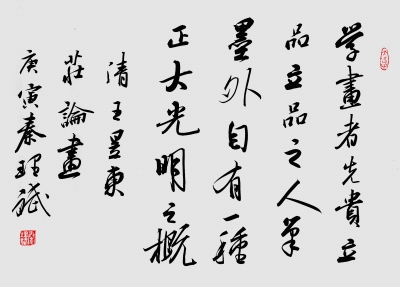 学畫者先貴立
品立品之人筆
墨外自有一種
正大光明之概
清王昱東
莊論畫
庚寅秦理斌